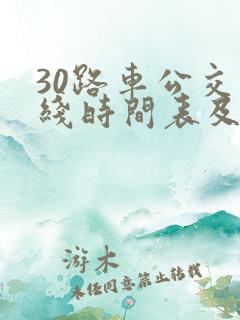 30路車公交
綫時間表及
游木
未任同意禁止转载